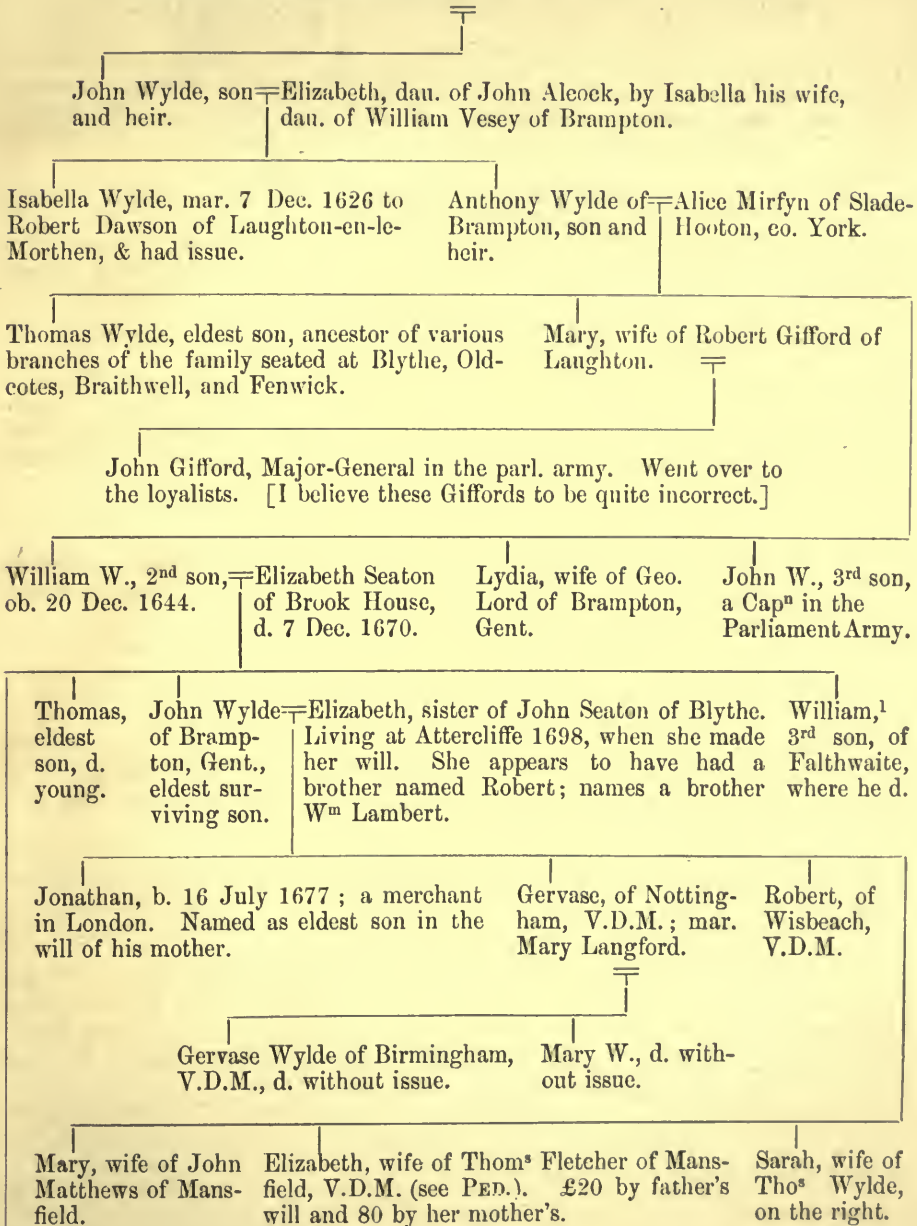 John Wylde, son Elizabeth, dau. of John Alcock, by Isabella his wife,
and heir. dau. of William Vesey of Brampton.
Isabella Wylde, mar. 7 Dec. 1626 to
Robert Dawson of Laughton-en-le-
Morthen, & had issue.
Anthony Wylde of
Brampton, son and
heir.
Alice Mirfyn of Slade-
Hooton, co. York.
Thomas Wylde, eldest son, ancestor of various
branches of the family seated at Blythe, Old-
cotes, Braithwell, and Fenwick.
Mary, wife of Robert Gifford of
Laughton.
John Gifford, Major-General in the parl. army. Went over to
the loyalists. [I believe these Giffords to be quite incorrect.]
William W., 2nd son,
ob. 20 Dec. 1644.
Elizabeth Seaton
of Brook House,
d. 7 Dec. 1670.
Lydia, wife of Geo.
Lord of Brampton,
Gent.
John W., 3rd son,
a Capn in the
Parliament Army.
Thomas,
eldest
son, d.
young.
John Wylde
of Bramp-
ton, Gent.,
eldest sur-
viving son.
Elizabeth, sister of John Seaton of Blythe.
Living at Attercliffe 1698, when she made
her will. She appears to have had a
brother named Robert; names a brother
Wm Lambert.
William,1
3rd son, of
Falthwaite,
where he d.
Jonathan, b. 16 July 1677 ; a merchant
in London. Named as eldest son in the
will of his mother.
Gervase, of Notting-
ham, V.D.M. ; mar.
Mary Langford.
Robert, of
Wisbeach,
V.D.M.
Gervase Wylde of Birmingham,
V.D.M., d. without issue.
Mary W., d. with-
out issue.
Mary, wife of John
Matthews of Mans-
field.
Elizabeth, wife of Thoms Fletcher of Mans-
field, V.D.M. (see PED.). £20 by father's
will and 80 by her mother's.
Sarah, wife of
Thos Wylde,
on the right.